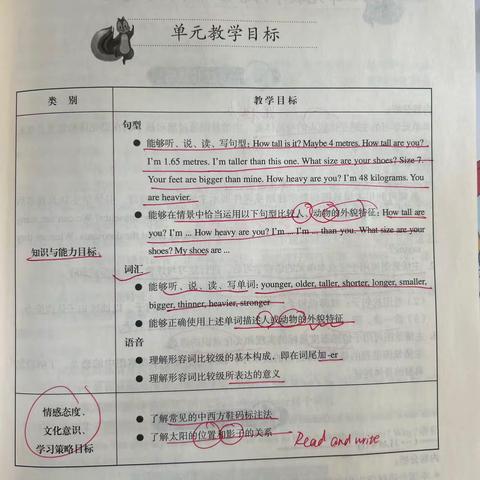 单元教学目标
类 别
教学目标
句型
● 能够听、说、读、写句型: How tall is it? Maybe 4 metres. How tall are you?
I'm 1.65 metres. I'm taller than this one. What size are your shoes? Size 7.
Your feet are bigger than mine. How heavy are you? I'm 48 kilograms. You
are heavier.
● 能够在情景中恰当运用以下句型比较人、动物的外貌特征: How tall are
you? I'm ... How heavy are you? I'm ... I'm ... than you. What size are your
shoes? My shoes are ...
知识与能力目标
词汇
● 能够听、说、读、写单词: younger, older, taller, shorter, longer, smaller,
bigger, thinner, heavier, stronger
● 能够正确使用上述单词描述人或动物的外貌特征
语音
● 理解形容词比较级的基本构成，即在词尾加 -er
● 理解形容词比较级所表达的意义
情感态度、
文化意识、
学习策略目标
● 了解常见的中西方鞋码标注法
● 了解太阳的位置和影子的关系
Read and write